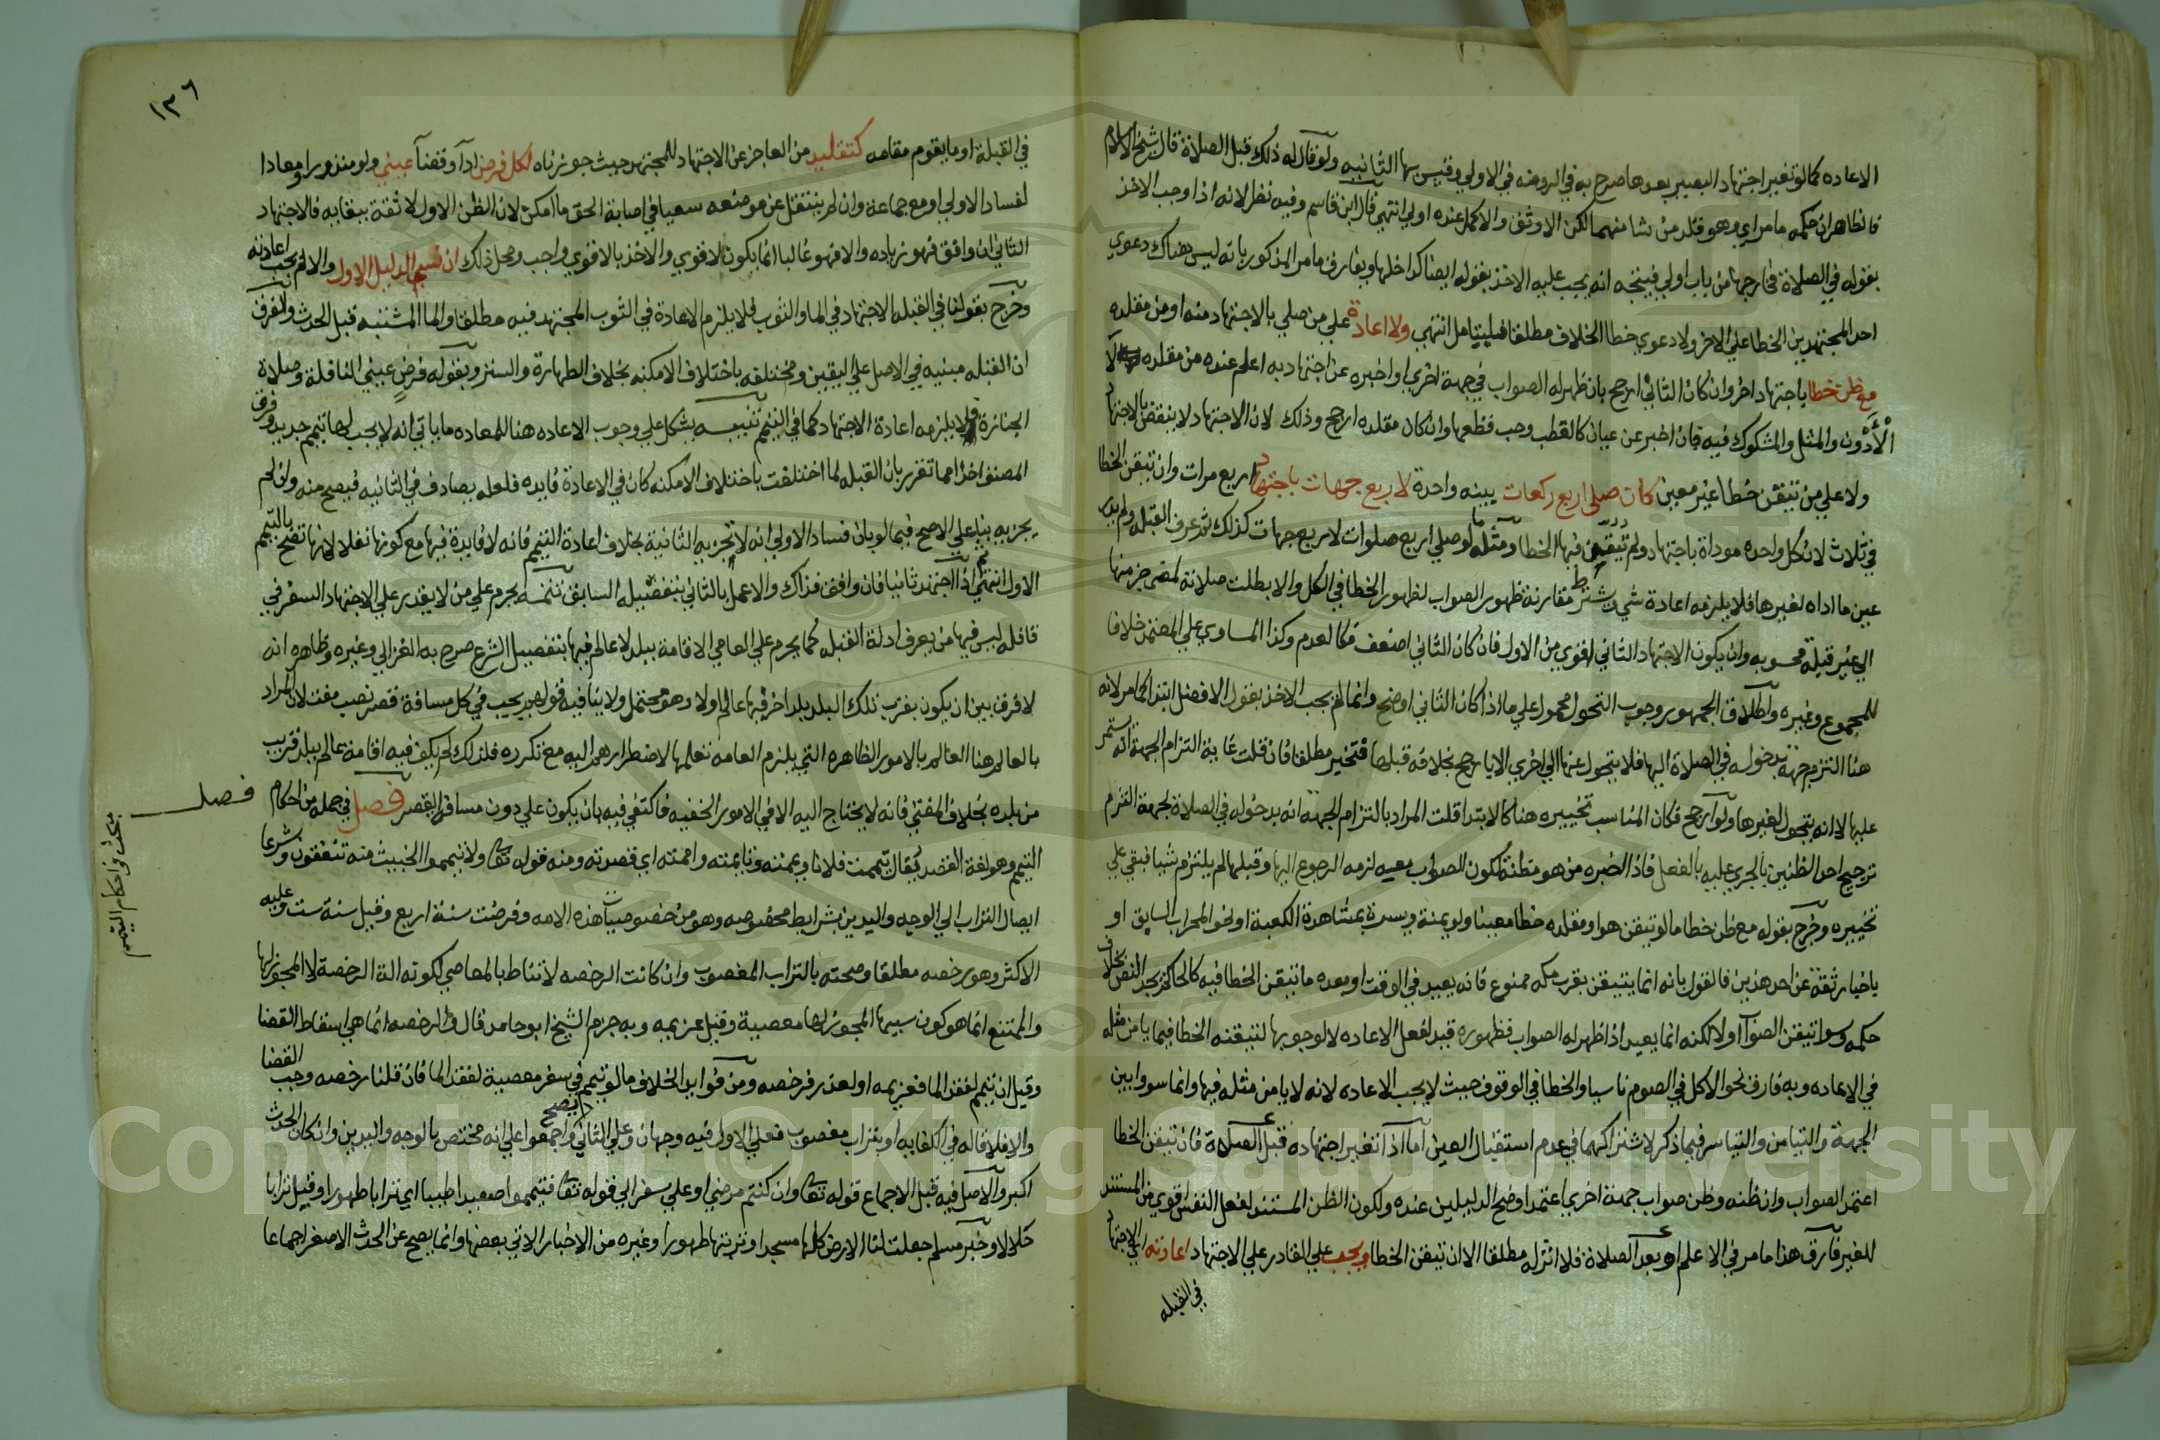 الاعاده كما لو تغير اجتهاد البصير بعدها صرح به في الروضه في الاولي وقيس بها الثانيه ولو قال له ذلك قبل الصلاة قال شيخ الاسلام
فالظاهر ان حكمه ما مر اي وهو قلد من شا منهما لكن الاوثق والاكمل عنده اولي انتهي قال ابن قاسم وفيه نظر لانه اذا وجب الاخذ
بقوله في الصلاة فخارجها من باب اولي فيتجه انه يجب عليه الاخذ بقوله ايضا كداخلها ويفارق ما مر المذكور بانه ليس هناك دعوي
احد المجتهدين الخطا علي الاخر ولا دعوي خطا الخلاف مطلقا فليتامل انتهي ولا اعادة علي من صلي بالاجتهاد منه او من مقلده
مع ظن خطا باجتهاد اخر وان كان الثاني ارجح بان ظهر له الصواب في جهة اخري او اخبره عن اجتهاد به اعلم عنده من مقلده لا
الادون والمثل والمشكوك فيه فان اخبر عن عيان كالقطب وجب قطعها وان كان مقلده ارجح وذلك لان الاجتهاد لا ينقض بالاجتهاد
ولا علي من تيقن خطا غير معين كان صلي اربع ركعات بنيه واحدة لاربع جهات باجتهاد اربع مرات وان تيقن الخطا
في ثلاث لان كل واحده موداة باجتهاد ولم يتعين فيها الخطا ومثله ما لو صلي اربع صلوات لاربع جهات كذلك ثم عرف القبله ولم يدر
عين ما اداه لغيرها فلا يلزمه اعادة شي وشرط مقارنة ظهور الصواب لظهور الخطا في الكل والا بطلت صلاته لمضي جزء منها
الي غير قبلة محسوبه وان يكون الاجتهاد الثاني اقوي من الاول فان كان الثاني اضعف فكالعدم وكذا المساوي علي المعتمد خلافا
للمجموع وغيره واطلاق الجمهور وجوب التحول محمول علي ما اذا كان الثاني اوضح وانما لم يجب الاخذ بقول الافضل ابتدا كما مر لانه
هنا التزم جهة بدخوله في الصلاة اليها فلا يتحول عنها الي اخري الا بارجح بخلافه قبلها فتخير مطلقا فان قلت غاية التزام الجهة انه يستمر
عليها لا انه يتحول لغيرها ولو ارجح فكان المناسب تخييره هنا كالابتدا قلت المراد بالتزام الجهة انه بدخوله في الصلاة لجهة التزم
ترجيح احد الظنين بالجري عليه بالفعل فاذا اخبره من هو مظنة لكون الصواب معه لزمه الرجوع اليها وقبلها لم يلتزم شيا فبقي علي
تخييره وخرج بقوله مع ظن خطا ما لو تيقن هو او مقلده خطا معينا ولو يمنة ويسرة بمشاهدة الكعبة او نحو المحراب السابق او
باخبار ثقة عن احد هذين فالقول بانه انما يتيقن بقرب مكه ممنوع فانه يعيد في الوقت او بعده ما تيقن الخطا فيه كالحاكم يجد النص بخلاف
حكمه وسوا تيقن الصواب او لا لكنه انما يعيد اذا ظهر له الصواب فظهوره قيد لفعل الاعاده لا لوجوبها لتيقنه الخطا فيما يامن مثله
في الاعاده وبه فارق نحو الاكل في الصوم ناسيا والخطا في الوقوف حيث لا يجب الاعاده لانه لا يامن مثله فيها وانما سووا بين
الجهة والتيامن والتياسر فيما ذكر لاشتراكهما في عدم استقبال العين اما اذا تغير اجتهاده قبل الصلاة فان تيقن الخطا
اعتمد الصواب وان ظنه وظن صواب جهة اخري اعتمد اوضح الدليلين عنده ولكون الظن المستند لفعل النفس اقوي من المستند
للغير فارق هذا ما مر في الاعلم او بعد الصلاة فلا اثر له مطلقا الا ان تيقن الخطا ويجب علي القادر علي الاجتهاد اعادته اي الاجتهاد
في القبله
١٣٦
في القبلة او ما يقوم مقامه كتقليد من العاجز عن الاجتهاد للمجتهد حيث جوزناه لكل فرض ادا وقضا عيني ولو منذورا ومعادا
لفساد الاولي او مع جماعة وان لم ينتقل عن موضعه سعيا في اصابة الحق ما امكن لان الظن الاول لا ثقة ببقايه فالاجتهاد
الثاني ان وافق فهو زياده والا فهو غالبا انما يكون لاقوي والاخذ بالاقوي واجب ومحل ذلك ان نسي الدليل الاول والا لم يجب اعادته
وخرج بقولنا في القبلة الاجتهاد في الما والثوب فلا يلزم الاعادة في الثوب المجتهد فيه مطلقا والما المشتبه قبل الحدث والفرق
ان القبله مبنيه في الاصل علي اليقين ومختلفه باختلاف الامكنه بخلاف الطهارة والستر وبقوله فرض عيني النافلة وصلاة
الجنازة فلا يلزمه اعادة الاجتهاد كما في التيمم تنبيه يشكل علي وجوب الاعاده هنا للمعاده ما ياتي انه لا يجب لها تيمم جديد وفرق
المصنف اخذا مما تقرر بان القبله لما اختلفت باختلاف الامكنه كان في الاعادة فايده فلعله يصادف في الثانيه فيصح منه وان لم
يجزيه بنا علي الاصح فيما لو بان فساد الاولي انه لا تجزيه الثانية بخلاف اعادة التيمم فانه لا فايدة فيها مع كونها نفلا لانها تصح بالتيمم
الاول انتهي ثم اذا اجتهد ثانيا فان وافق فذاك والا عمل بالثاني بتفصيله السابق تتمه يحرم علي من لا يقدر علي الاجتهاد السفر في
قافله ليس فيها من يعرف ادلة القبله كما يحرم علي العامي الاقامة ببلد لا عالم فيها بتفصيل الشرع صرح به الغزالي وغيره وظاهره انه
لا فرق بين ان يكون بقرب تلك البلد بلد اخر فيها عالم او لا وهو محتمل ولا ينافيه قولهم يجب في كل مسافة قصر نصب مفت لان المراد
بالعالم هنا العالم بالامور الظاهره التي يلزم العامه تعلمها لاضطرارهم اليه مع تكرره فلذلك لم يكف فيه اقامة عالم ببلد قريب
من بلده بخلاف المفتي فانه لا يحتاج اليه الا في الامور الخفيه فاكتفي فيه بان يكون علي دون مسافة القصر فصل في جمله من احكام
التيمم وهو لغة القصد يقال تيممت فلانا ويممته وتاممته واممته اي قصدته ومنه قوله تعا ولا تيمموا الخبيث منه تنفقون وشرعا
ايصال التراب الي الوجه واليدين بشرايط مخصوصه وهو من خصوصيات هذه الامه وفرضت سنة اربع وقيل سنة ست وعليه
الاكثر وهو رخصه مطلقا وصحته بالتراب المغصوب وان كانت الرخصه لا تناط بالمعاصي لكونه الة الرخصة لا المجوز لها
والممتنع انما هو كون سببها المجوز لها معصية وقيل عزيمه وبه جزم الشيخ ابو حامد قال والرخصه انما هي اسقاط القضا
وقيل ان تيمم لفقد الما فعزيمه او لعذر فرخصه ومن فوايد الخلاف ما لو تيمم في سفر معصية لفقد الما فان قلنا رخصه وجب القضا
والا فلا قاله في الكفايه او بتراب مغصوب فعلي الاول فيه وجهان وعلي الثاني لا يصح واجمعوا علي انه مختص بالوجه واليدين وان كان الحدث
اكبر والاصل فيه قبل الاجماع قوله تعا وان كنتم مرضي او علي سفر الي قوله تعا فتيمموا صعيدا طيبا اي ترابا طهورا وقيل ترابا
حلالا وخبر مسلم جعلت لنا الارض كلها مسجدا وتربتها طهورا وغيره من الاخبار الاتي بعضها وانما يصح عن الحدث الاصغر اجماعا
فصل
مبحث في احكام التيمم
Copyright © King Saud University